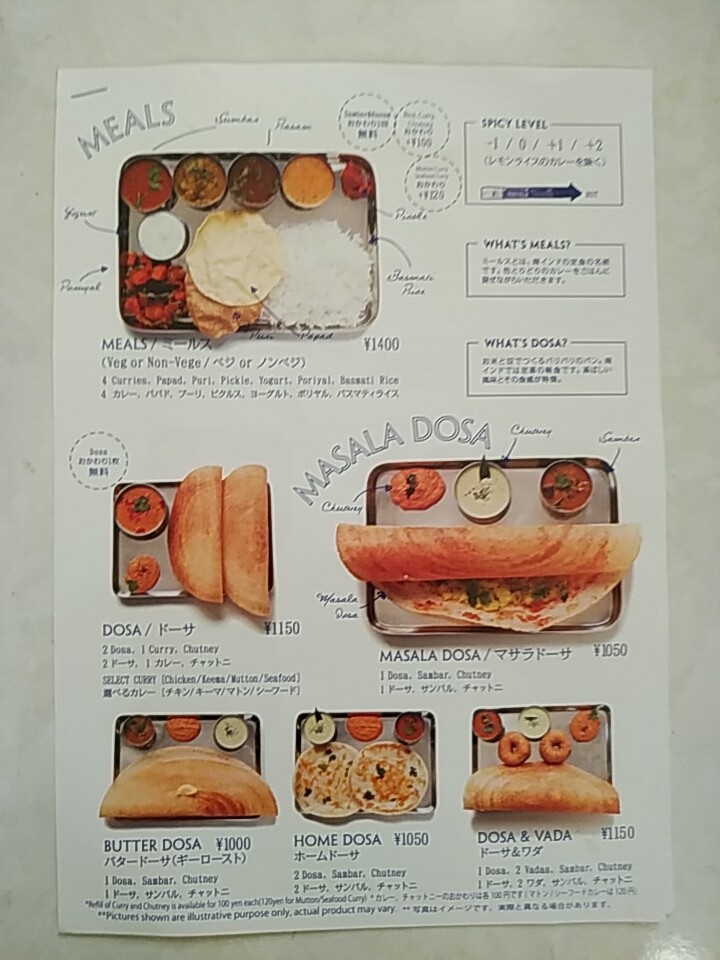 MEALS
Sambar
Rasam
おかわり1回
無料
Rice, Curry
Chutney
おかわり
+¥100
Mutton Curry
Seafood Curry
おかわり
+¥120
SPICY LEVEL
-1 / 0 / +1 / +2
(レモンライスのカレーを除く)
HOT
Yogurt
Pickle
Poriyal
Basmati
Rice
Puri
Papad
WHAT'S MEALS?
ミールスとは、南インドの定食の名称
です。色とりどりのカレーをごはんに
混ぜながらいただきます。
MEALS / ミールス ¥1400
(Veg or Non-Vege / ベジ or ノンベジ)
4 Curries, Papad, Puri, Pickle, Yogurt, Poriyal, Basmati Rice
4 カレー, パパド, プーリ, ピクルス, ヨーグルト, ポリヤル, バスマティライス
WHAT'S DOSA?
お米と豆でつくるパリパリのパン。南
インドでは定番の軽食です。香ばしい
風味とその食感が特徴。
MASALA DOSA
Chutney
Sambar
Chutney
Masala
Dosa
Dosa
おかわり1枚
無料
DOSA / ドーサ ¥1150
2 Dosa, 1 Curry, Chutney
2 ドーサ, 1 カレー, チャットニ
SELECT CURRY [Chicken/Keema/Mutton/Seafood]
選べるカレー [チキン/キーマ/マトン/シーフード]
MASALA DOSA / マサラドーサ ¥1050
1 Dosa, Sambar, Chutney
1 ドーサ, サンバル, チャットニ
BUTTER DOSA ¥1000
バタードーサ(ギーロースト)
1 Dosa, Sambar, Chutney
1 ドーサ, サンバル, チャットニ
HOME DOSA ¥1050
ホームドーサ
2 Dosa, Sambar, Chutney
2 ドーサ, サンバル, チャットニ
DOSA & VADA ¥1150
ドーサ&ワダ
1 Dosa, 2 Vadas, Sambar, Chutney
1 ドーサ, 2 ワダ, サンバル, チャットニ
*Refill of Curry and Chutney is available for 100 yen each(120yen for Mutton/Seafood Curry) *カレー、チャットニーのおかわりは各100円です(マトン/シーフードカレーは120円)
**Pictures shown are illustrative purpose only, actual product may vary. **写真はイメージです。実際と異なる場合があります。